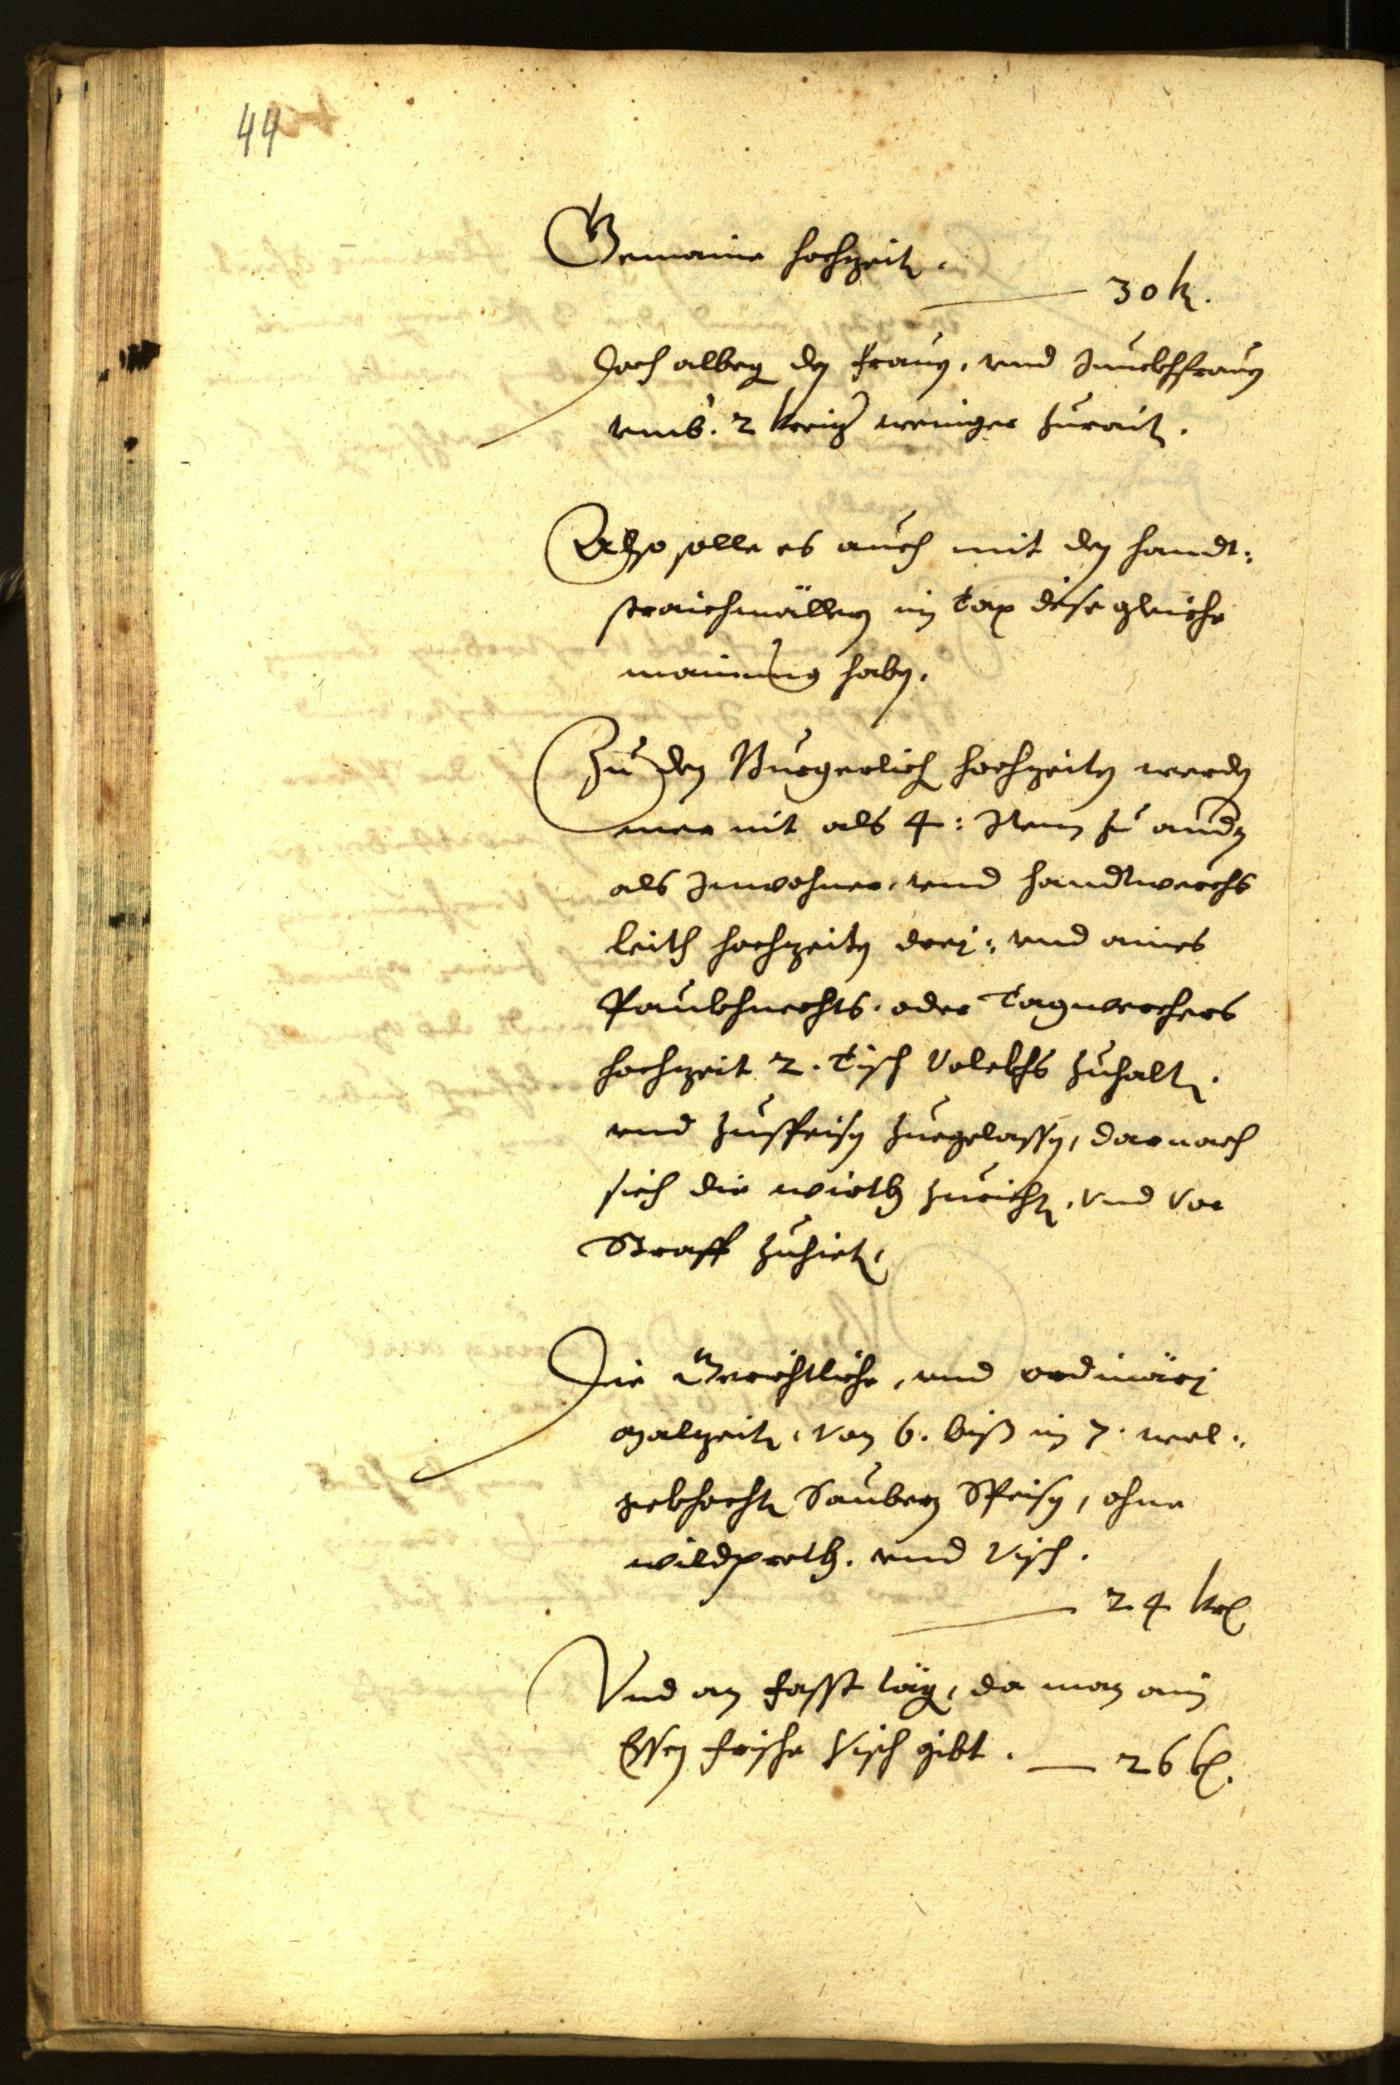 44
Gemaine hochzeit.
30 k.
Doch albeg den frauen, und Junckhfrauen
umb. 2 kreizer weniger zurait.
Also solle es auch mit den handt:
straichmällern in tax dise gleiche
mainung haben.
Zu den Burgerlichen hochzeiten werden
mer nit als 4: Item zu andern
als Inwohner, und handtwerchs
leith hochzeiten drej: und aines
Paukhnechts. oder Tagwerchers
hochzeit 2. tisch Volckhs zuhalten.
und zuspeisen zuegelassen, darnach
sich die wirth zurichten, und vor
Straff zuhieten.
Die Gerichtliche, und ordinärj
malzeiten, von 6. biß in 7. wol:
gekhochten Saubern Speisen, ohne
wildpreth. und Visch.
24 kr
Und an fasst täg, da man ain
Essen frische Visch gibt. 26 k.